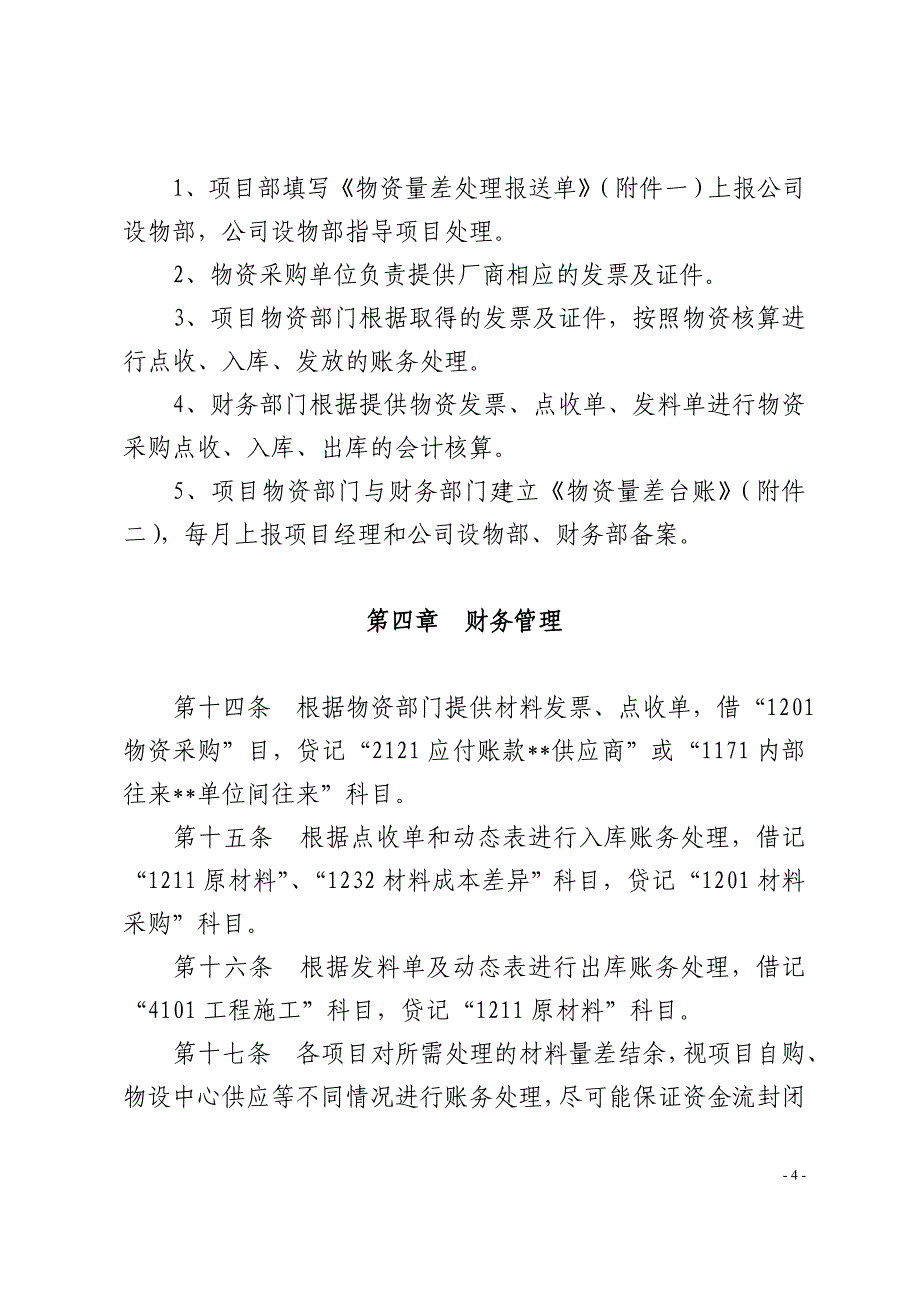 1、项目部填写《物资量差处理报送单》（附件一）上报公司
设物部，公司设物部指导项目处理。
2、物资采购单位负责提供厂商相应的发票及证件。
3、项目物资部门根据取得的发票及证件，按照物资核算进
行点收、入库、发放的账务处理。
4、财务部门根据提供物资发票、点收单、发料单进行物资
采购点收、入库、出库的会计核算。
5、项目物资部门与财务部门建立《物资量差台账》（附件
二），每月上报项目经理和公司设物部、财务部备案。
第四章　财务管理
第十四条　根据物资部门提供材料发票、点收单，借“1201
物资采购”目，贷记“2121应付账款**供应商”或“1171内部
往来**单位间往来”科目。
第十五条　根据点收单和动态表进行入库账务处理，借记
“1211原材料”、“1232材料成本差异”科目，贷记“1201材料
采购”科目。
第十六条　根据发料单及动态表进行出库账务处理，借记
“4101工程施工”科目，贷记“1211原材料”科目。
第十七条　各项目对所需处理的材料量差结余，视项目自购、
物设中心供应等不同情况进行账务处理，尽可能保证资金流封闭
- 4 -